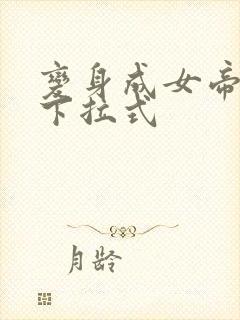 變身成女帝
下拉式
月龄